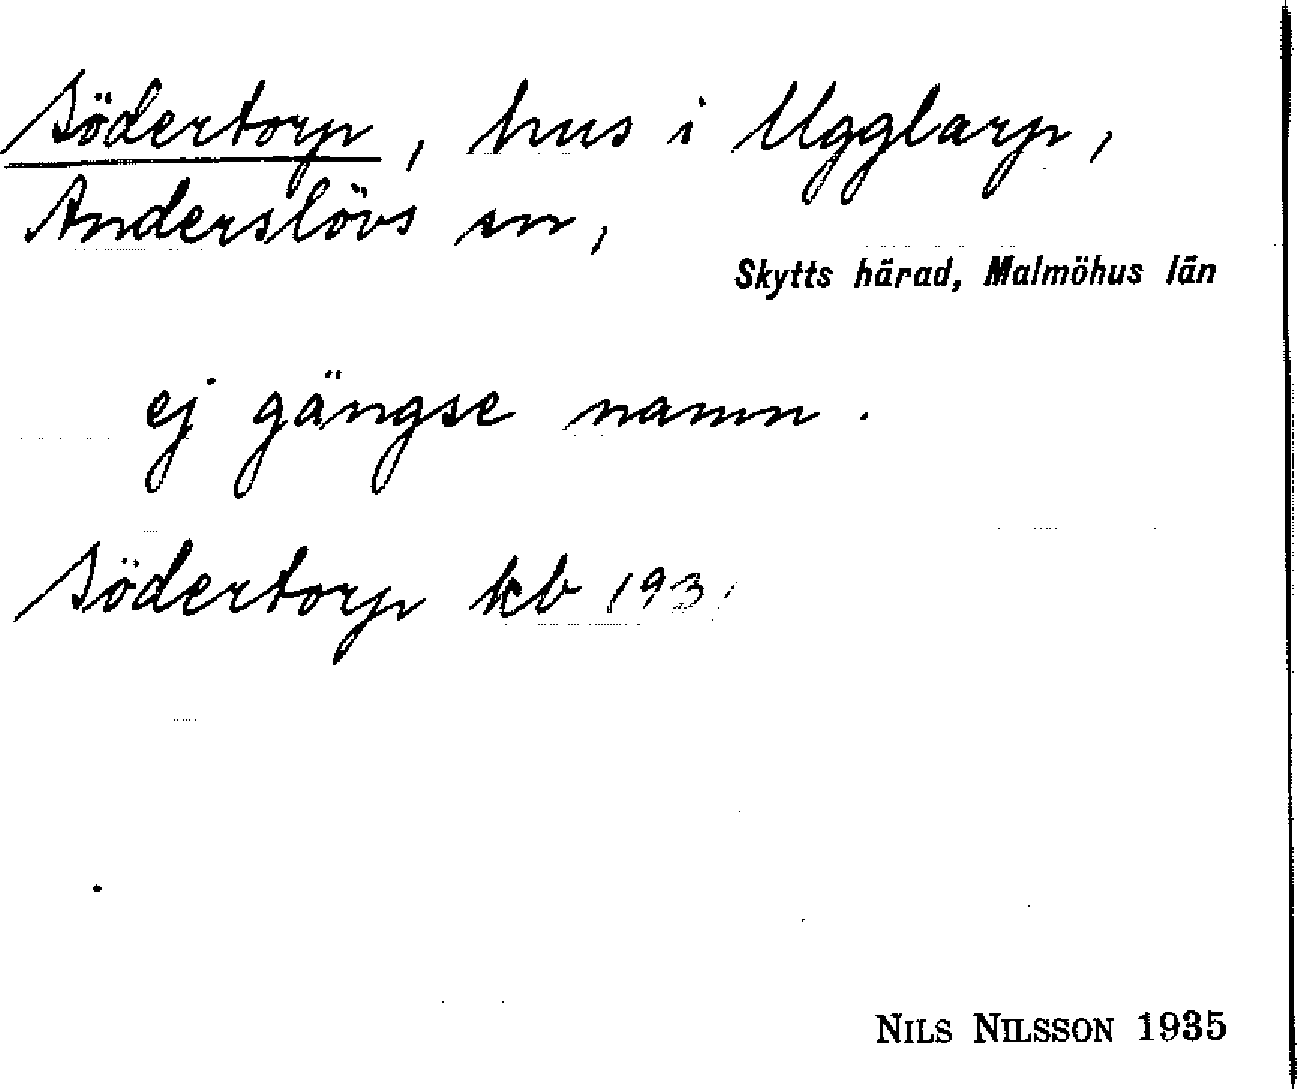 Södertorp, hus i Ugglarp,
Anderslövs sn,
Skytts härad, Malmöhus län
ej gängse namn.
Södertorp kb 1931
NILS NILSSON 1935